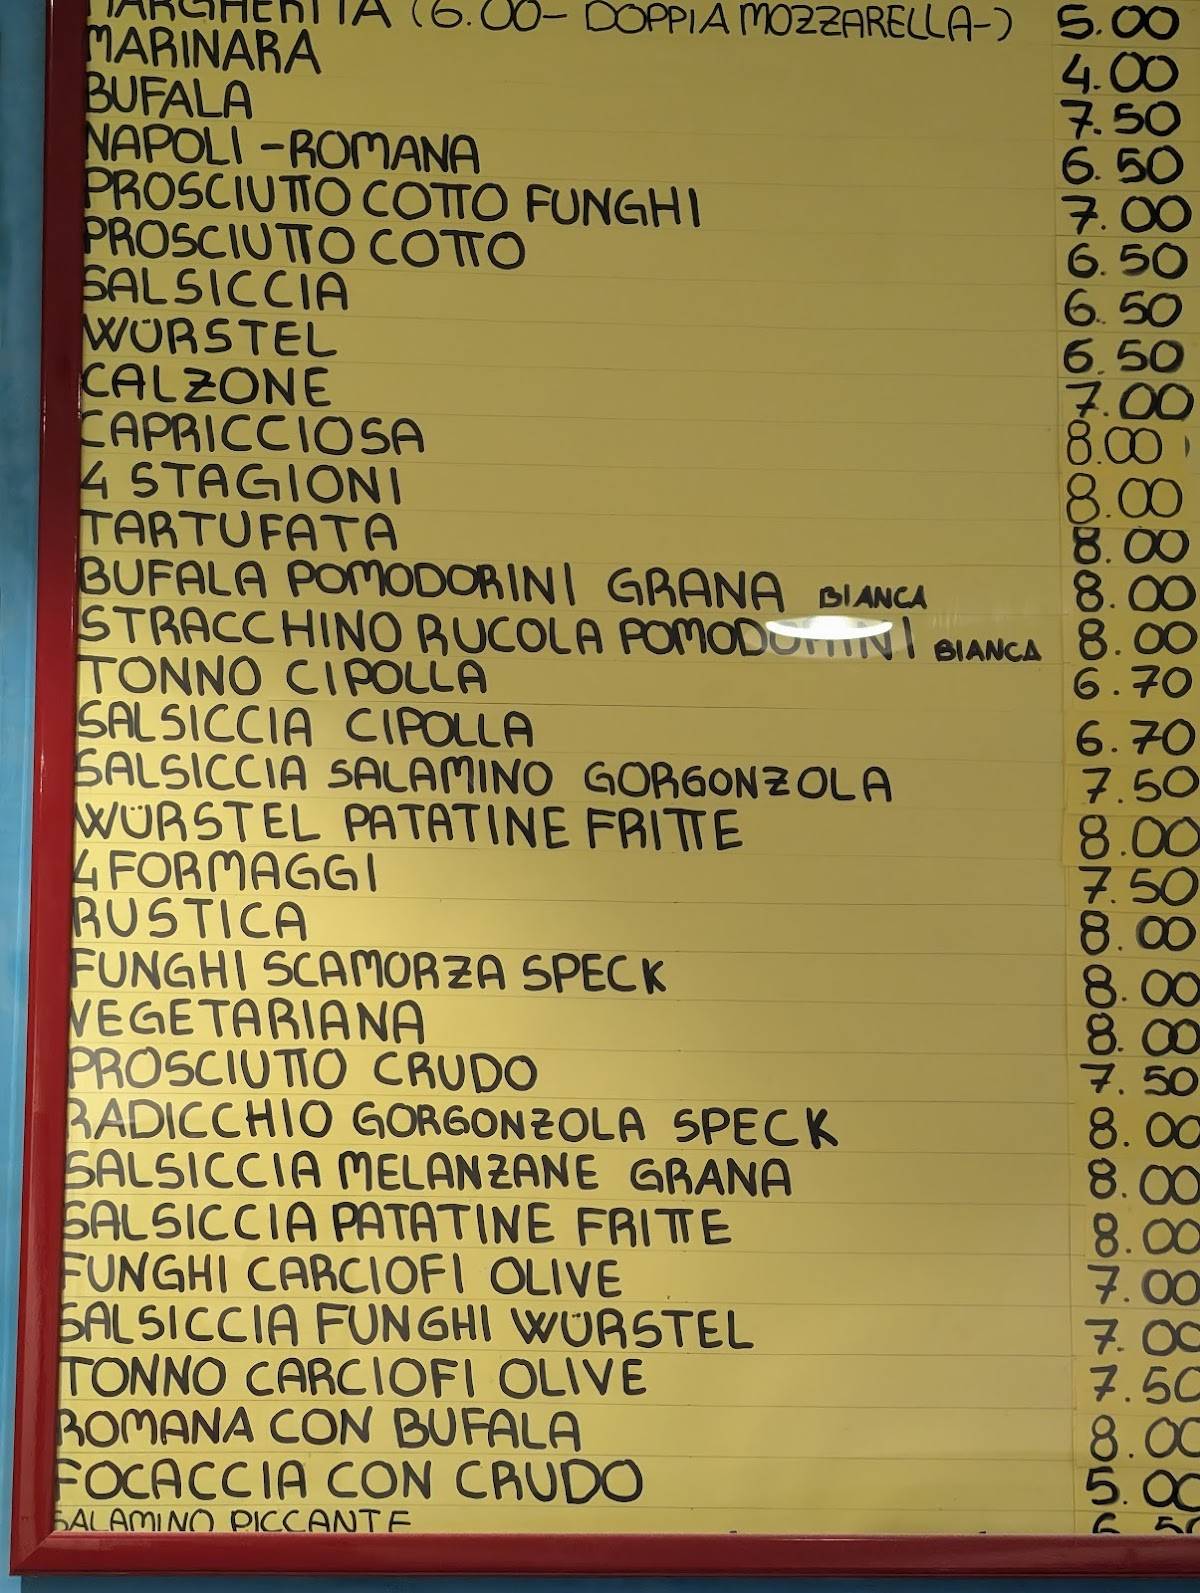 MARGHERITA (6.00- DOPPIA MOZZARELLA-) 5.00
MARINARA 4.00
BUFALA 7.50
NAPOLI - ROMANA 6.50
PROSCIUTTO COTTO FUNGHI 7.00
PROSCIUTTO COTTO 6.50
SALSICCIA 6.50
WÜRSTEL 6.50
CALZONE 7.00
CAPRICCIOSA 8.00
4 STAGIONI 8.00
TARTUFATA 8.00
BUFALA POMODORINI GRANA BIANCA 8.00
STRACCHINO RUCOLA POMODORINI BIANCA 8.00
TONNO CIPOLLA 6.70
SALSICCIA CIPOLLA 6.70
SALSICCIA SALAMINO GORGONZOLA 7.50
WÜRSTEL PATATINE FRITTE 8.00
4 FORMAGGI 7.50
RUSTICA 8.00
FUNGHI SCAMORZA SPECK 8.00
VEGETARIANA 8.00
PROSCIUTTO CRUDO 7.50
RADICCHIO GORGONZOLA SPECK 8.00
SALSICCIA MELANZANE GRANA 8.00
SALSICCIA PATATINE FRITTE 8.00
FUNGHI CARCIOFI OLIVE 7.00
SALSICCIA FUNGHI WÜRSTEL 7.00
TONNO CARCIOFI OLIVE 7.50
ROMANA CON BUFALA 8.00
FOCACCIA CON CRUDO 5.00
SALAMINO PICCANTE 6.50